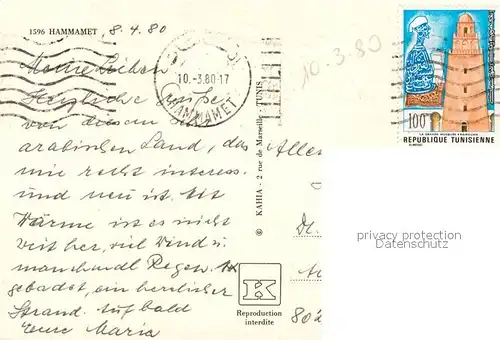 1596 HAMMAMET 8.4.80
Meine Lieben
Herzliche Grüße
von diesem
arabischen Land, das
mir recht interess.
und neu ist. Mit
Wärme ist es nicht
weit her, viel Wind u.
manchmal Regen.
gebadet, ein herrlicher
Strand. Auf bald
Eure Maria
10.-3.80-17
HAMMAMET
10.3.80
© KAHIA - 2 rue de Marseille - TUNIS
K
Reproduction
interdite
100
LA GRANDE MOSQUEE KAIROUAN
REPUBLIQUE TUNISIENNE
privacy protection
Datenschutz
802